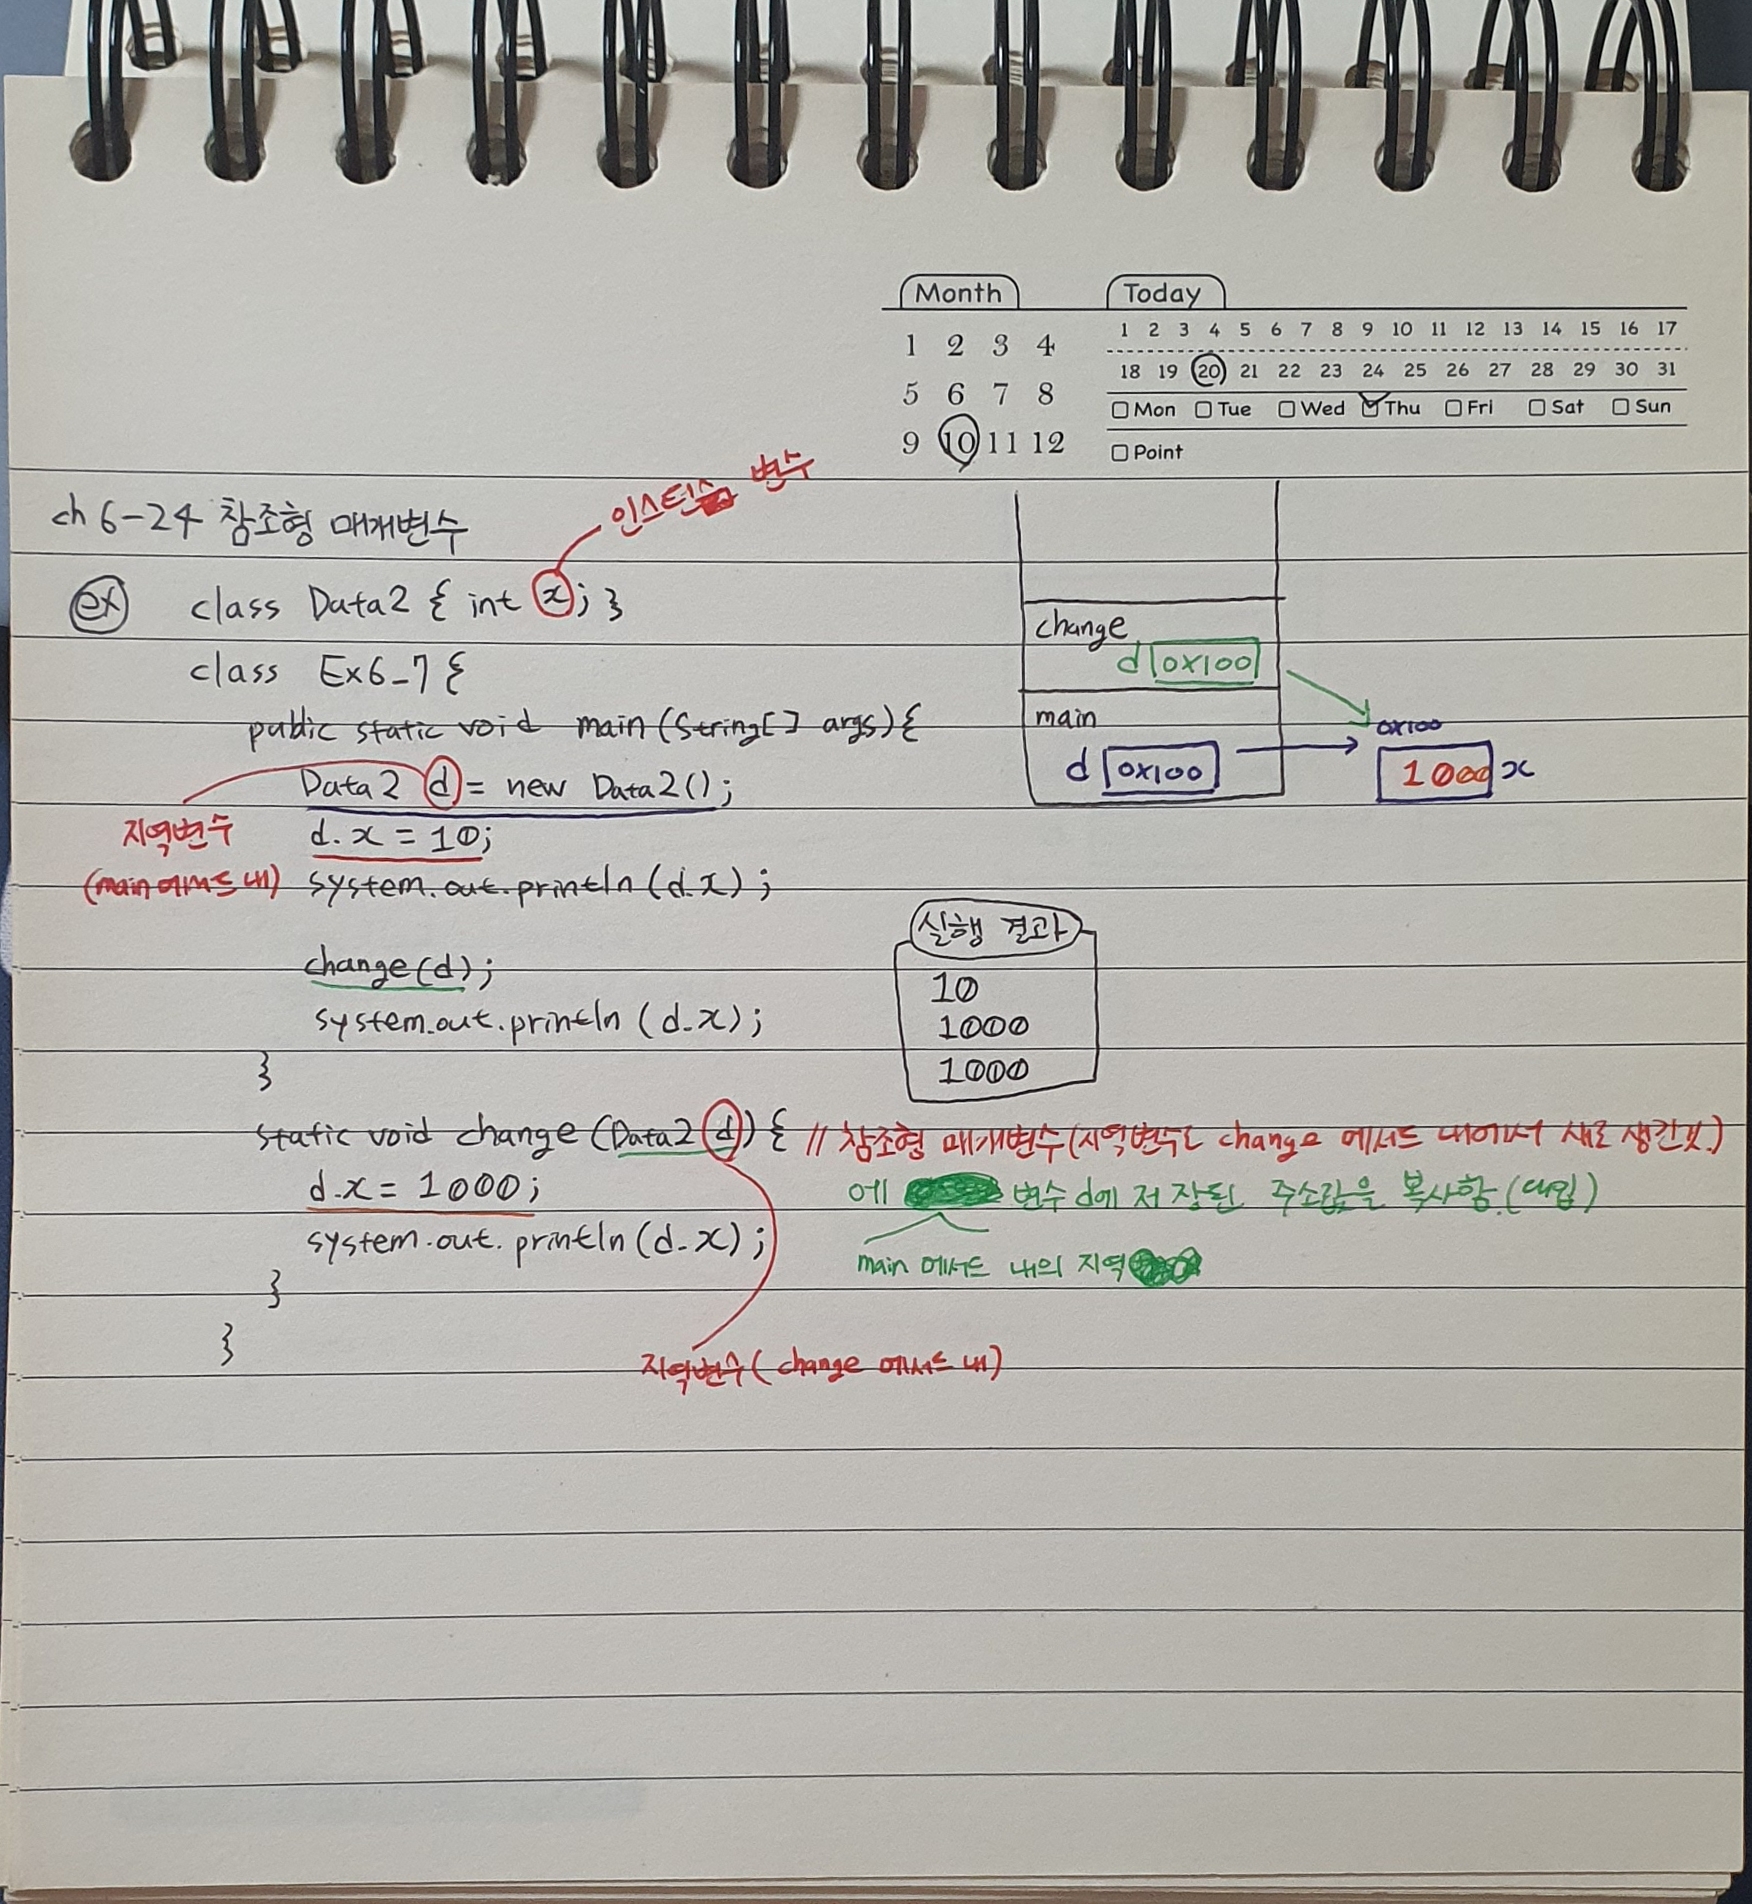 Month Today
1 2 3 4
5 6 7 8
9 10 11 12
1 2 3 4 5 6 7 8 9 10 11 12 13 14 15 16 17
18 19 20 21 22 23 24 25 26 27 28 29 30 31
Mon Tue Wed Thu Fri Sat Sun
Point
인스턴스 변수
ch 6-24 참조형 매개변수
ex class Data2 { int x; }
class Ex6_7 {
public static void main (String[] args) {
Data2 d = new Data2();
지역변수 d.x = 10;
(main 메서드 내) system.out.println (d.x);
change(d);
system.out.println (d.x);
}
static void change (Data2 d) { // 참조형 매개변수(지역변수로 change 메서드 내에서 새로 생긴
d.x = 1000; 에 변수 d에 저장된 주소값을 복사함.(대입)
system.out.println (d.x); main 메서드 내의 지역
}
}
지역변수 ( change 메서드 내)
change
d 0x100
main
d 0x100
0x100
1000 x
실행 결과
10
1000
1000